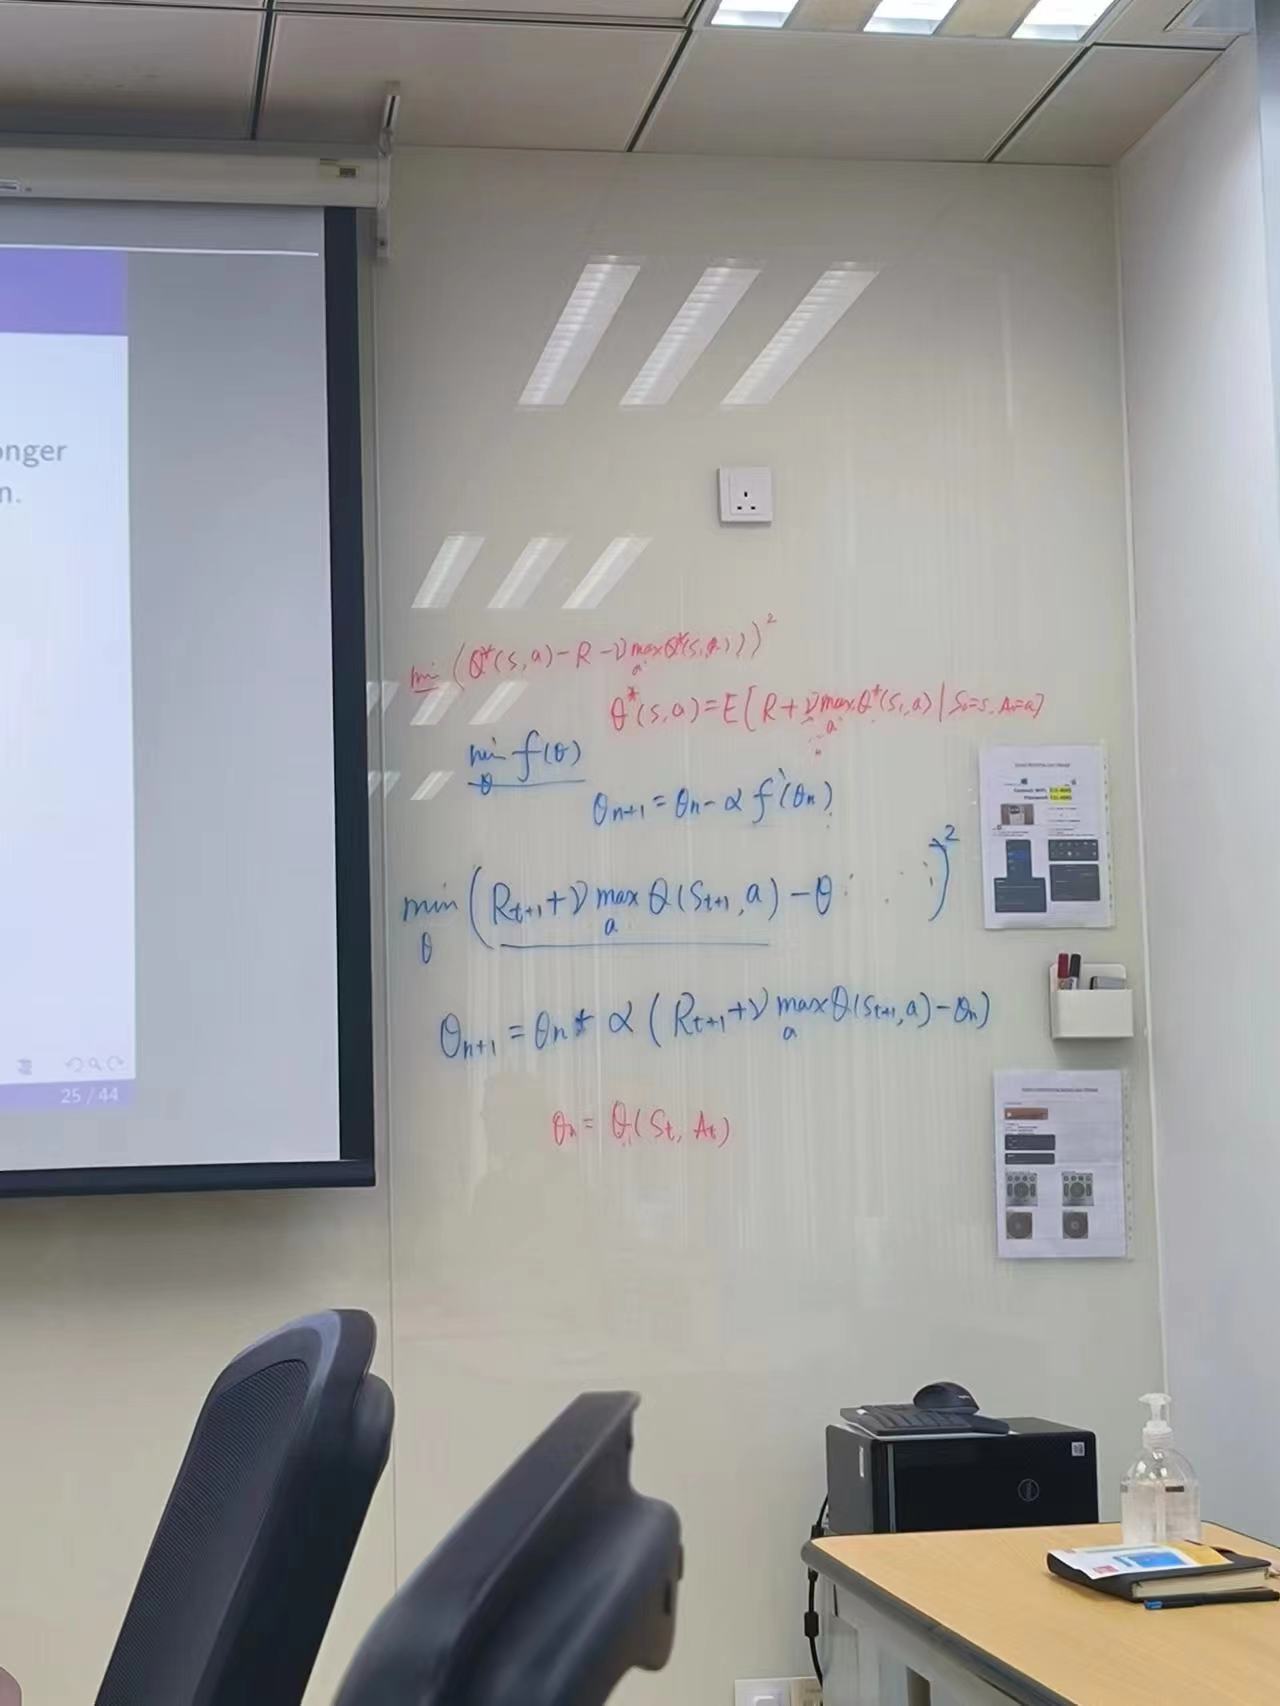 onger
n.
25 / 44
min (Q*(s,a) - R - γ max_a' Q*(s,a'))²
Q*(s,a) = E[R + γ max_a' Q*(S₁,a) | S₀=s, A₀=a]
min_θ f(θ)
θ_{n+1} = θ_n - α f'(θ_n)
min_θ (R_{t+1} + γ max_a Q(S_{t+1}, a) - θ )²
θ_{n+1} = θ_n + α (R_{t+1} + γ max_a Q(S_{t+1}, a) - θ_n)
θ_n = Q(S_t, A_t)